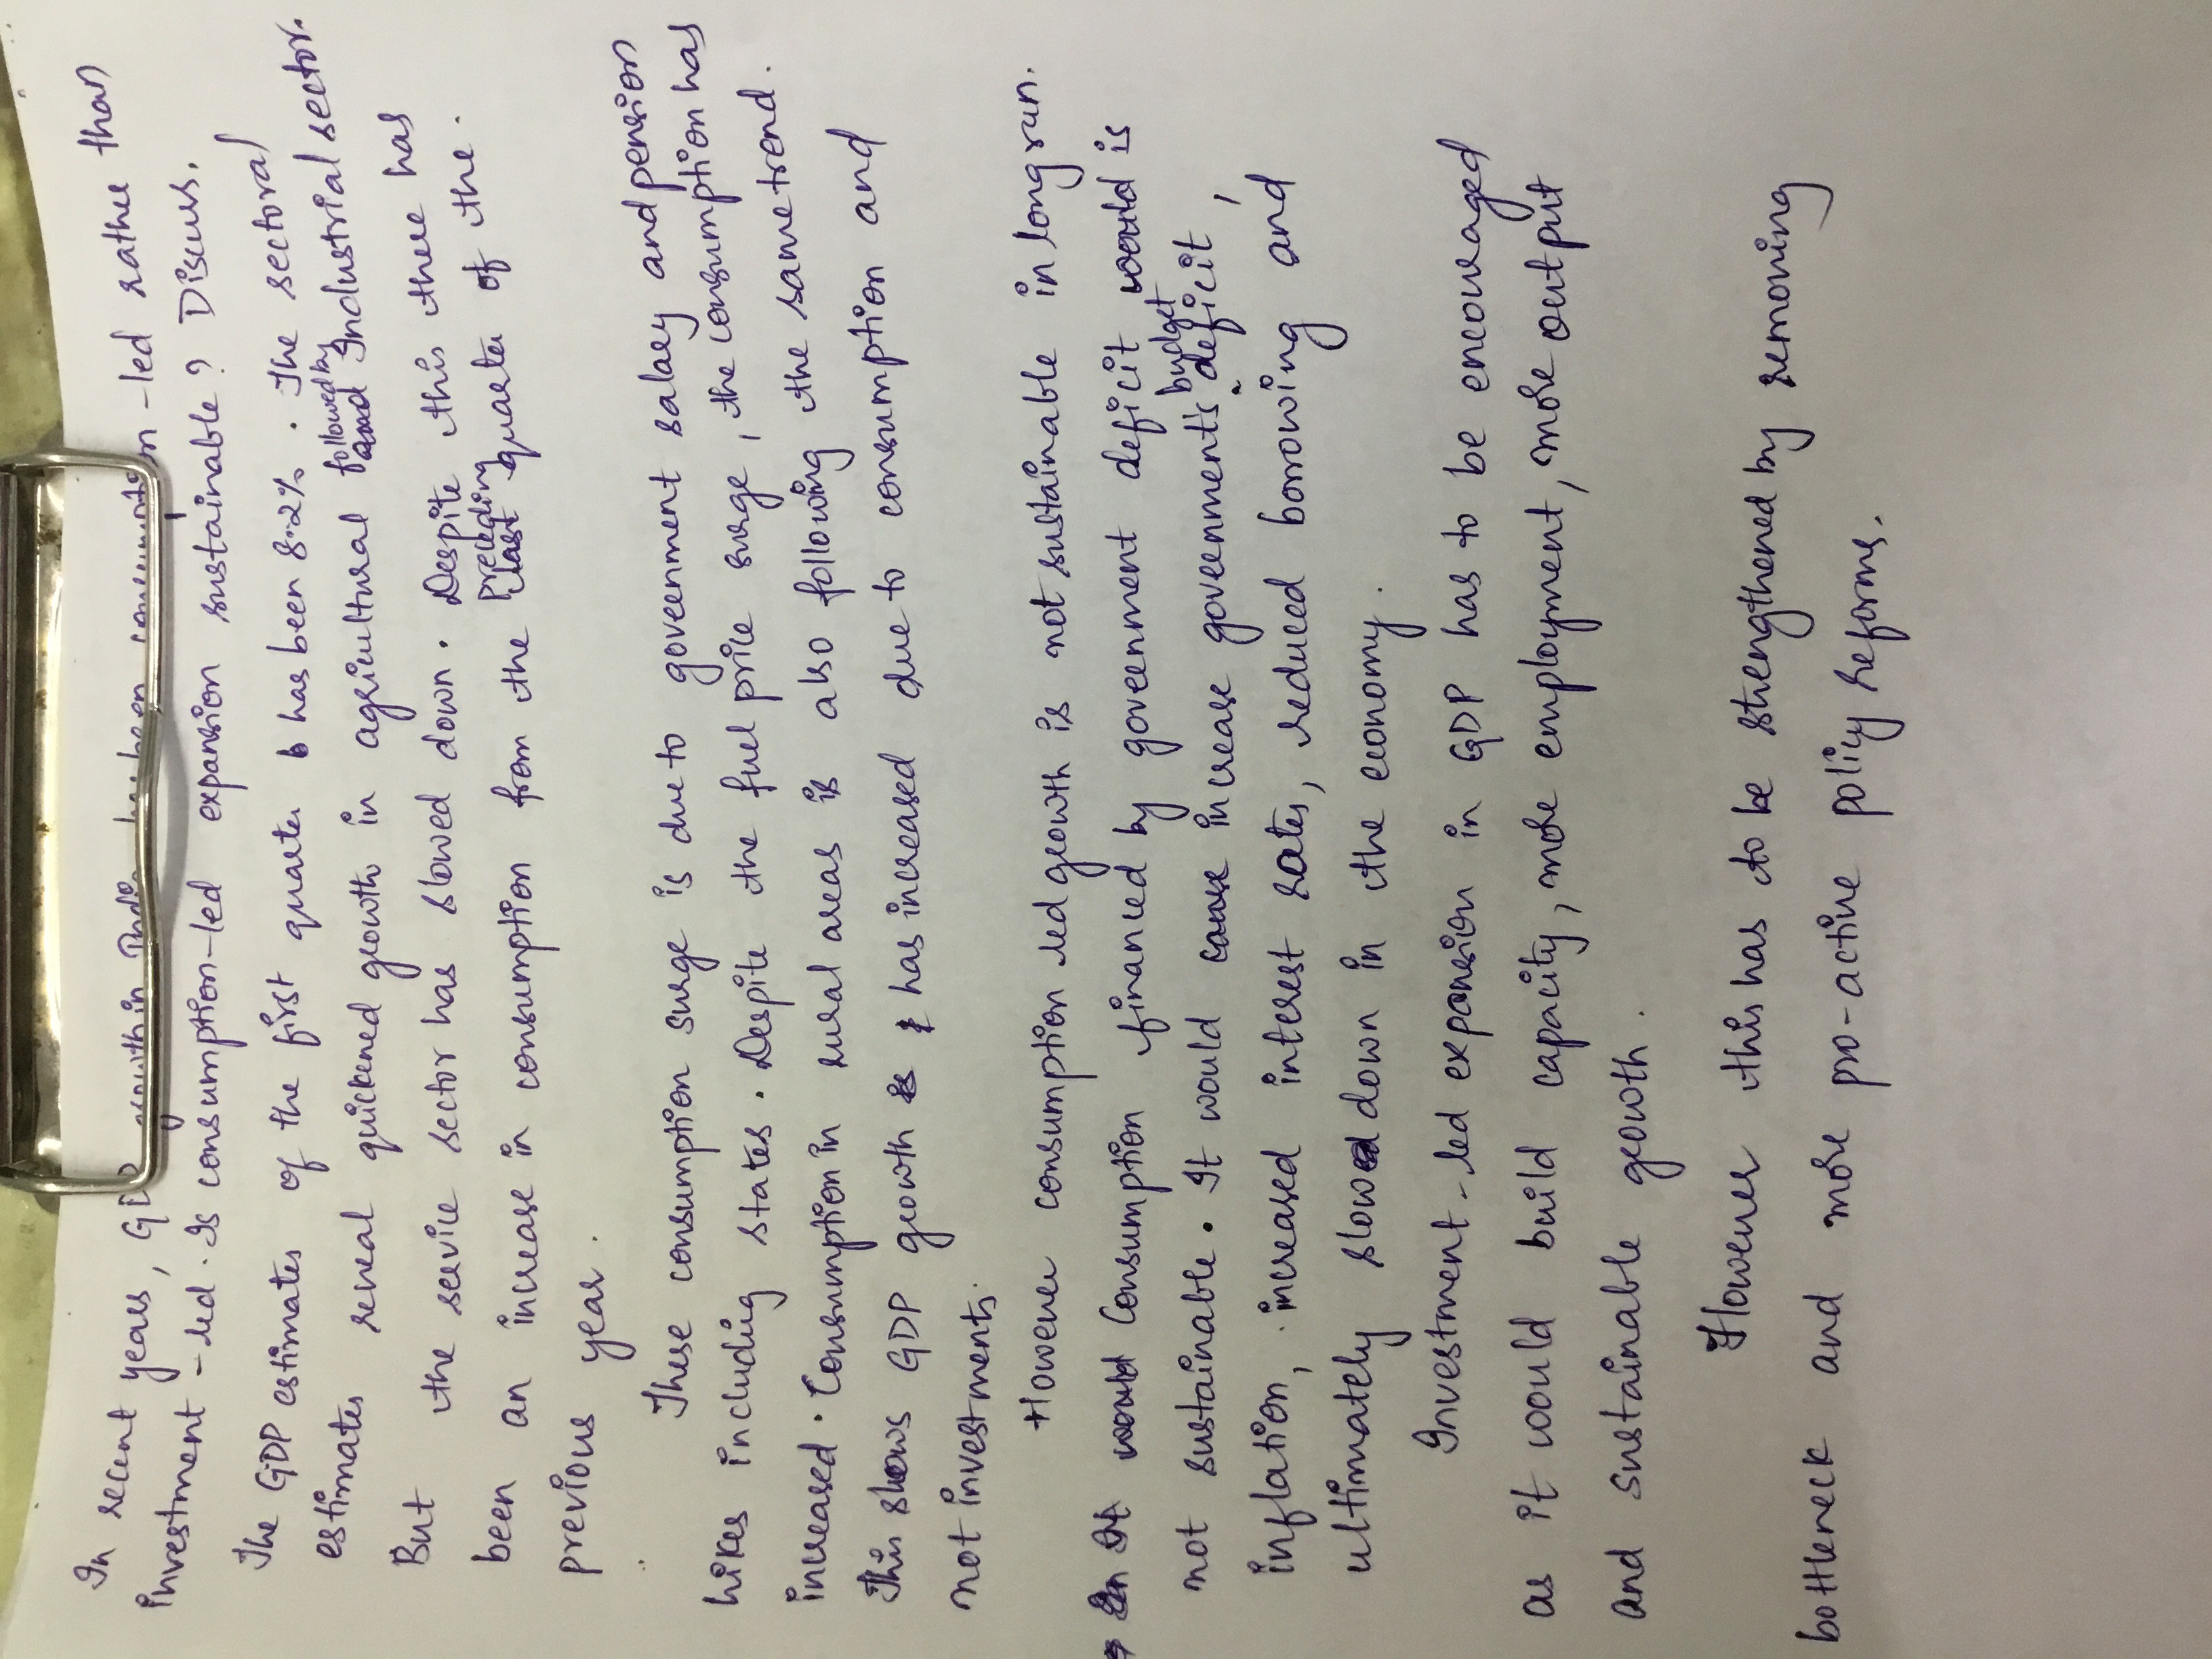 In recent years, GDP growth in India has been consumption-led rather than
investment-led. Is consumption-led expansion sustainable? Discuss.
The GDP estimates of the first quarter has been 8.2%. The sectoral
estimates reveal quickened growth in agricultural followed by Industrial sector.
But the service sector has slowed down. Despite this there has
been an increase in consumption from the preceding quarter of the
previous year.
These consumption surge is due to government salary and pension
hikes including states. Despite the fuel price surge, the consumption has
increased. Consumption in rural areas is also following the same trend.
This shows GDP growth has increased due to consumption and
not investments.
However consumption led growth is not sustainable in long run.
Consumption financed by government deficit is
not sustainable. It would increase government's budget deficit,
inflation, increased interest rates, reduced borrowing and
ultimately slow down in the economy.
Investment-led expansion in GDP has to be encouraged
as it would build capacity, more employment, more output
and sustainable growth.
However this has to be strengthened by removing
bottleneck and more pro-active policy reforms.